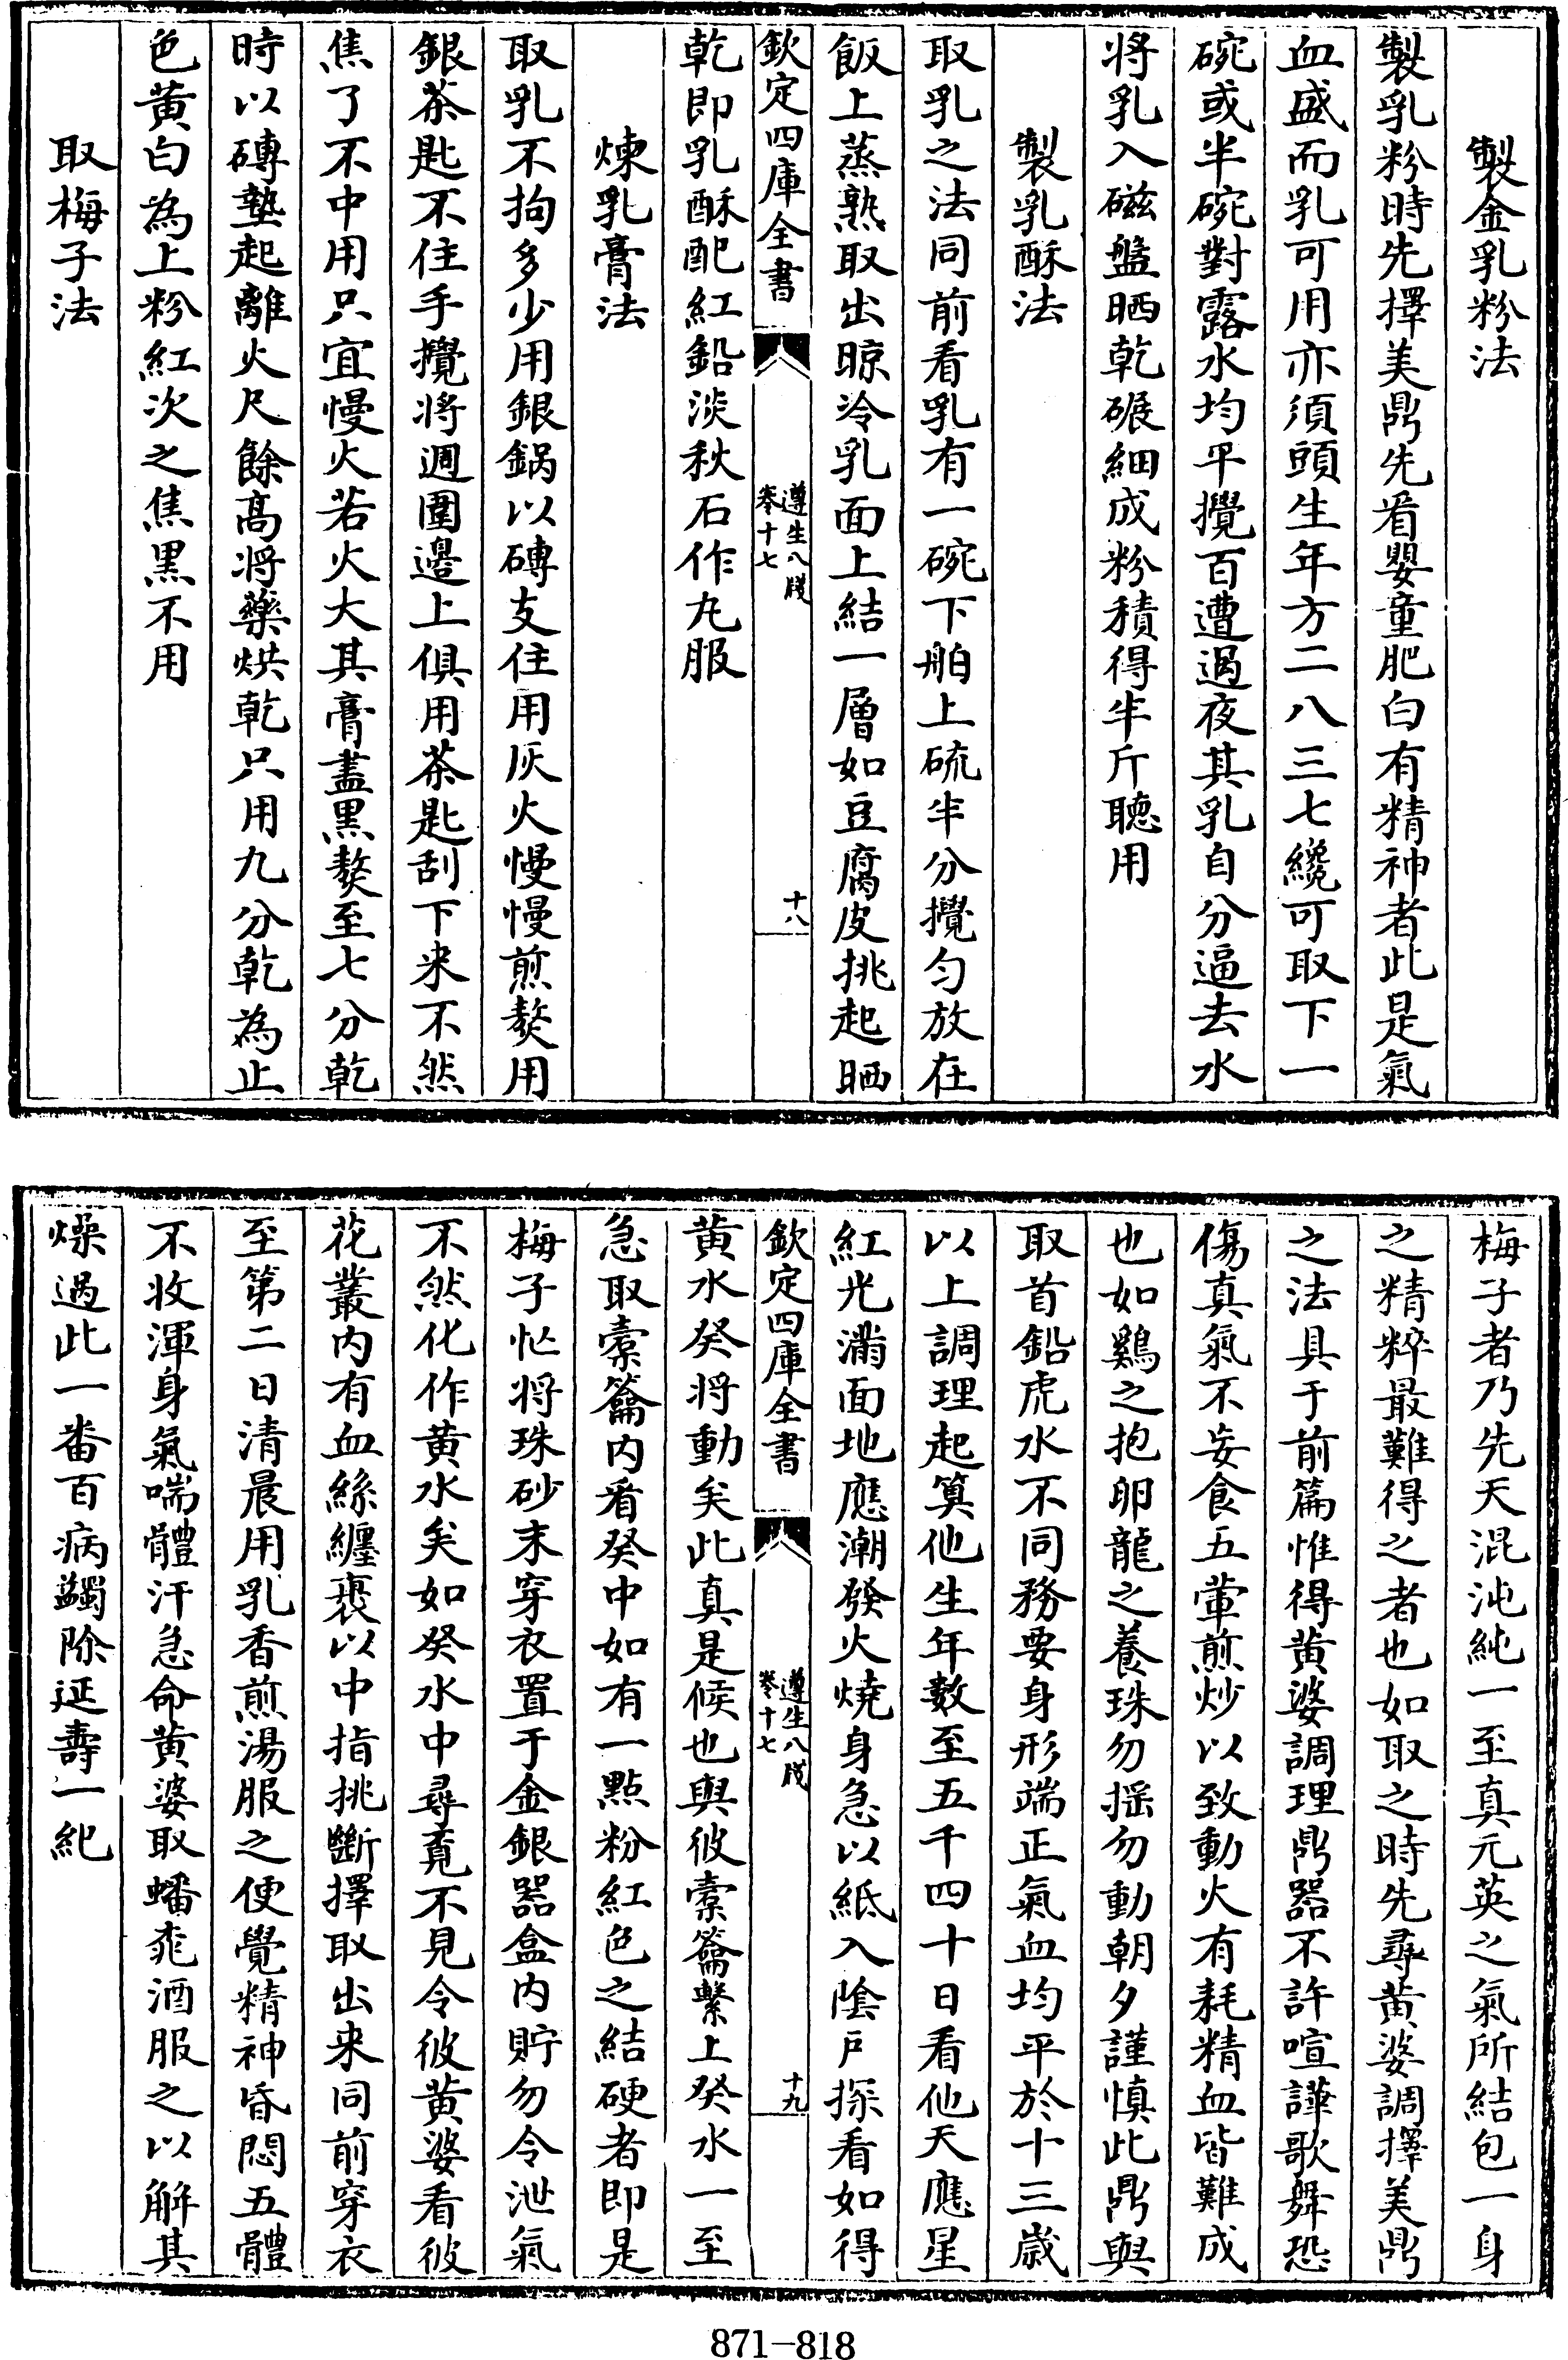 製金乳粉法
製乳粉時先擇美鼎先看嬰童肥白有精神者此是氣
血盛而乳可用亦須頭生年方二八三七纔可取下一
碗或半碗對露水均平攪百遭過夜其乳自分逼去水
将乳入磁盤晒乾碾細成粉積得半斤聽用
製乳酥法
取乳之法同前看乳有一碗下舶上硫半分攪匀放在
飯上蒸熟取出晾冷乳面上結一層如豆腐皮挑起晒
欽定四庫全書
遵生八牋
卷十七
十八
乾即乳酥配紅鉛淡秋石作丸服
煉乳膏法
取乳不拘多少用銀鍋以磚支住用灰火慢慢煎熬用
銀茶匙不住手攪將週圍邉上俱用茶匙刮下来不然
焦了不中用只宜慢火若火大其膏盡黒熬至七分乾
時以磚墊起離火尺餘髙将藥烘乾只用九分乾為止
色黄白為上粉紅次之焦黒不用
取梅子法
梅子者乃先天混沌純一至真元英之氣所結包一身
之精粹最難得之者也如取之時先尋黄婆調擇美鼎
之法具于前篇惟得黄婆調理鼎器不許喧譁歌舞恐
傷真氣不妄食五葷煎炒以致動火有耗精血皆難成
也如鷄之抱卵龍之養珠勿揺勿動朝夕謹慎此鼎與
取首鉛虎水不同務要身形端正氣血均平於十三歳
以上調理起算他生年數至五千四十日看他天應星
紅光滿面地應潮發火燒身急以紙入陰戸探看如得
欽定四庫全書
遵生八牋
卷十七
十九
黄水癸将動矣此真是候也與彼橐籥繫上癸水一至
急取橐籥内看癸中如有一點粉紅色之結硬者即是
梅子忙将珠砂末穿衣置于金銀器盒内貯勿令泄氣
不然化作黄水矣如癸水中尋覔不見令彼黄婆看彼
花叢内有血絲纏裹以中指挑斷擇取出来同前穿衣
至第二日清晨用乳香煎湯服之便覺精神昏悶五體
不收渾身氣喘體汗急命黄婆取蟠桃酒服之以解其
燥過此一番百病蠲除延壽一紀
871-818